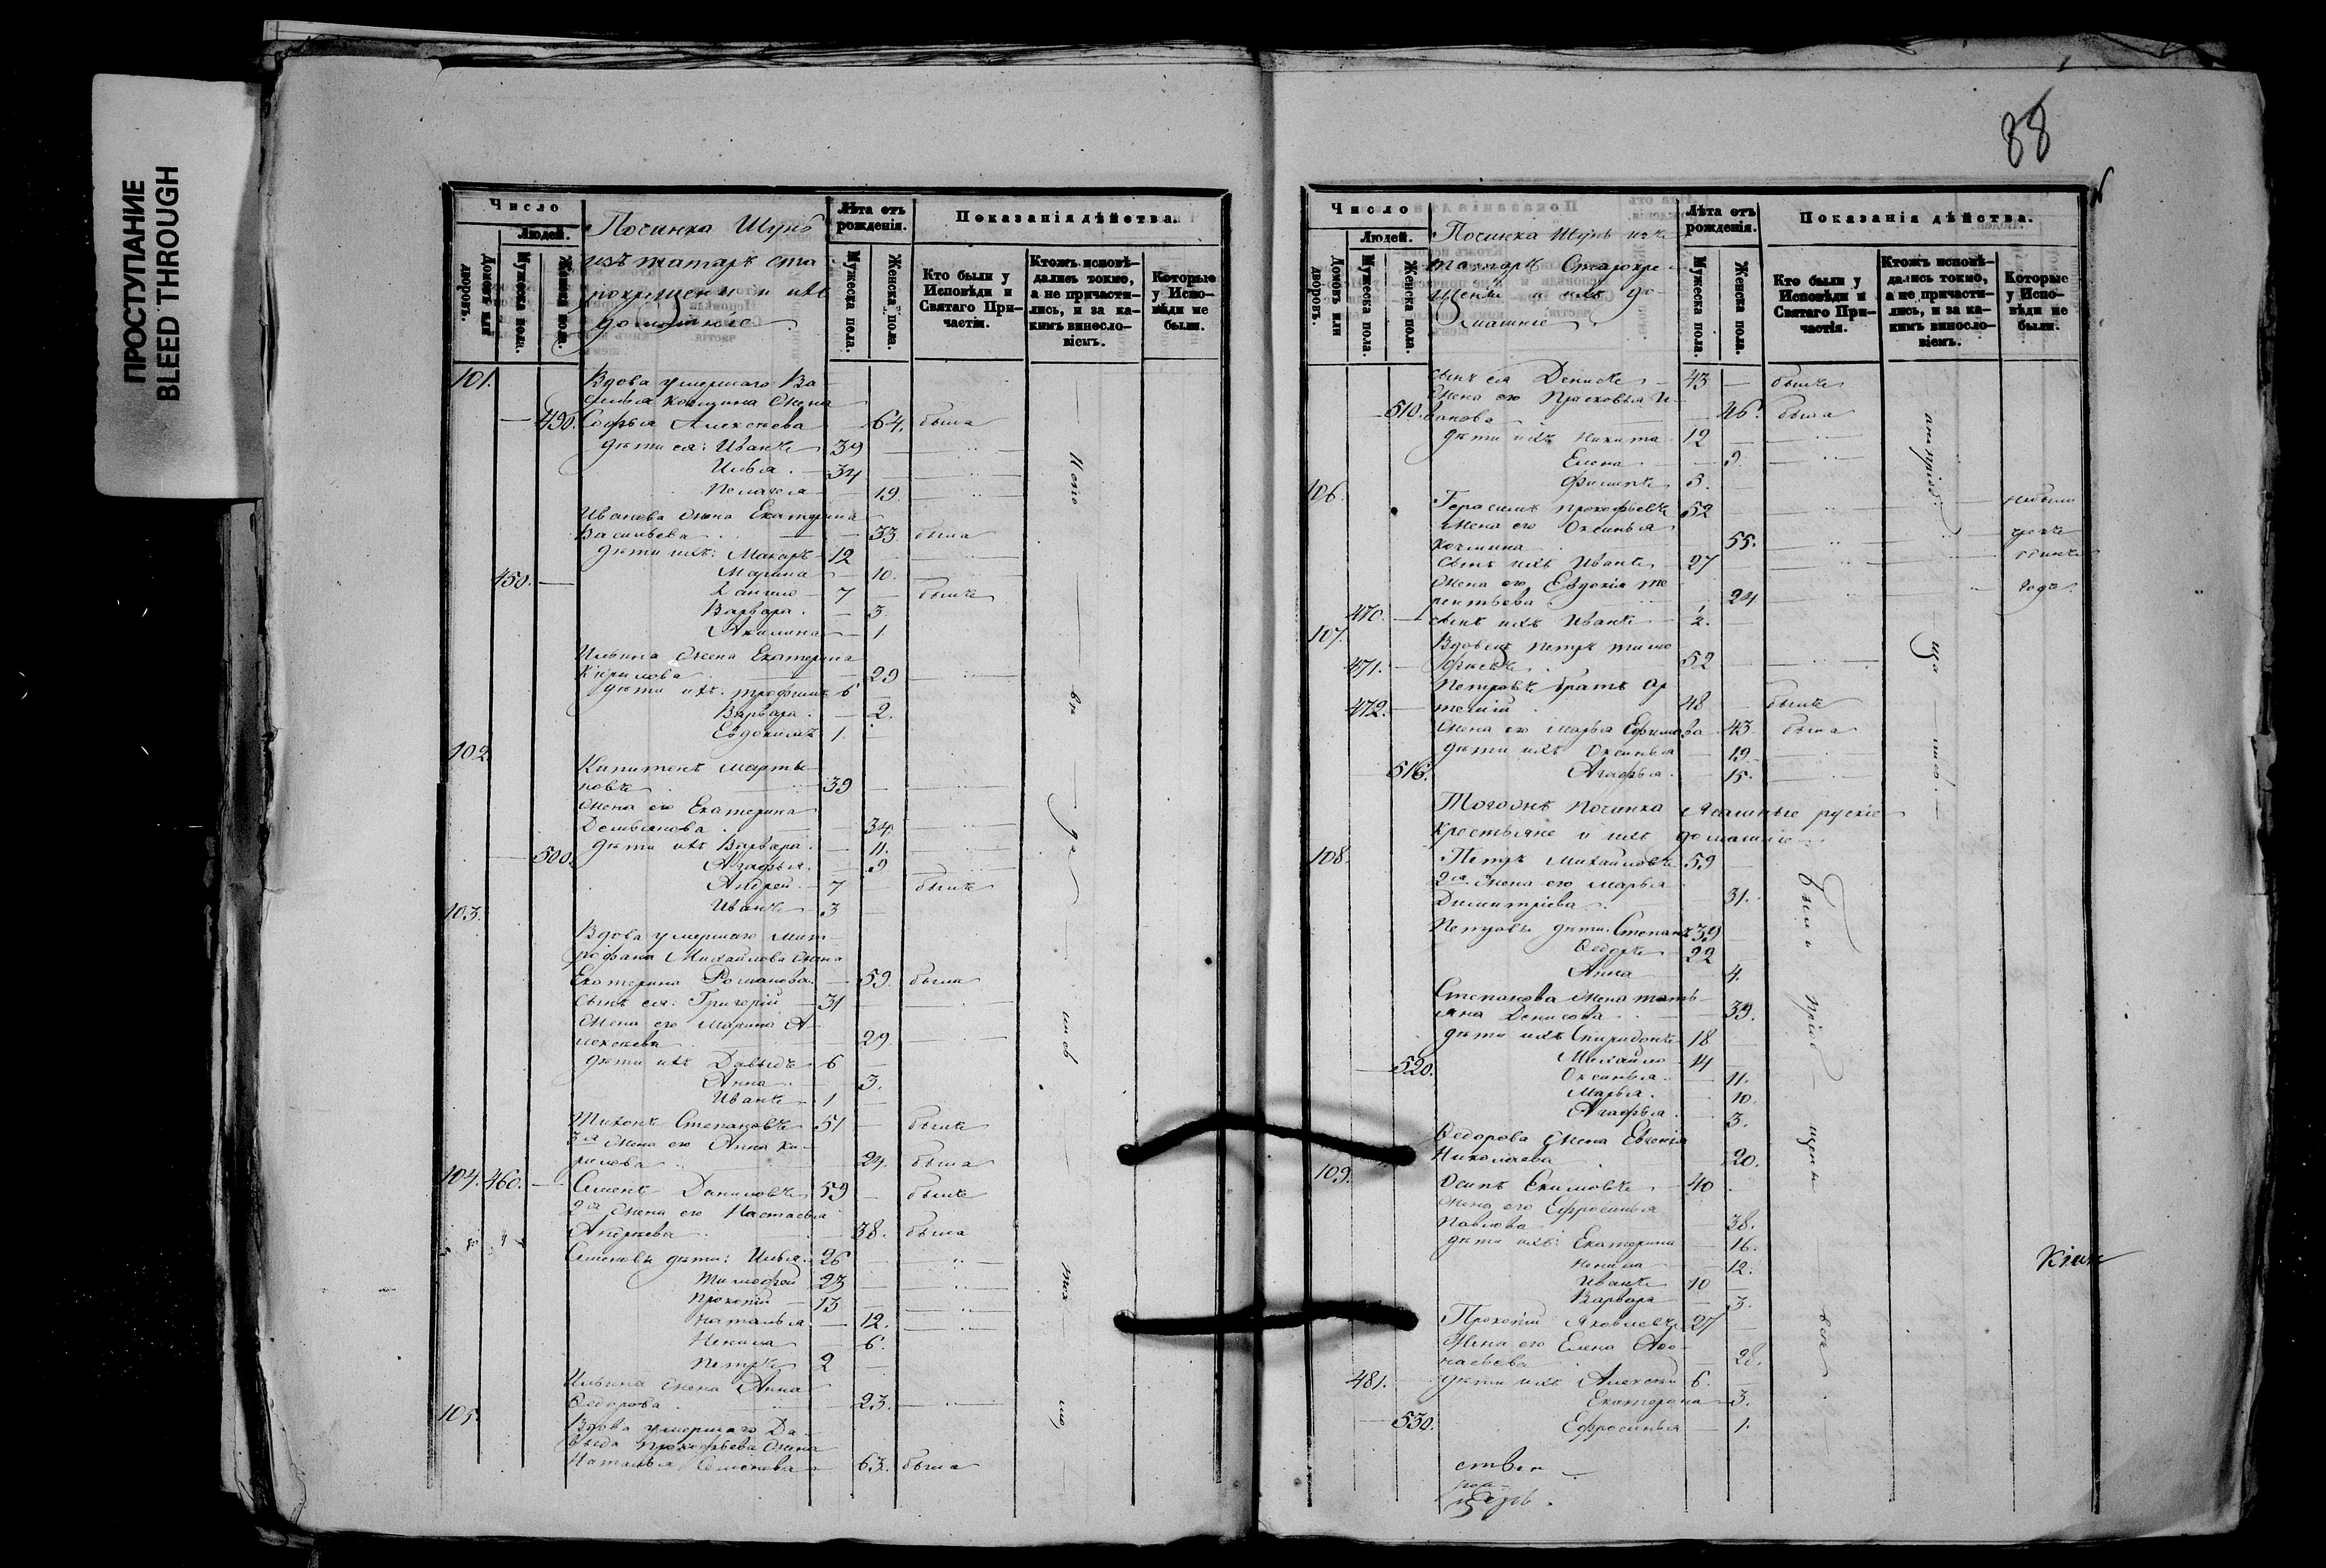 ПРОСТУПАНИЕ
BLEED THROUGH
Число
Людей.
Домовъ или дворовъ.
Мужеска пола.
Женска пола.
Починка Шунь
изъ татаръ ста
рокрещены и ихъ
домашніе
Лѣта отъ рожденія.
Мужеска пола.
Женска пола.
Показанія дѣйства.
Кто были у Исповѣди и Святаго Причастія.
Ктожъ исповѣдались токмо, а не причастились, и за какимъ винословіемъ.
Которые у Исповѣди не были.
101.
Вдова умершаго Ва-
силья Козмина жена
490. Софья Алексѣева 64. была
дѣти ея: Иванъ 39
Илья 34
Пелагея 19.
Иванова жена Екатерина
Васильева 33 была
дѣти ихъ: Макаръ 12
Марина 10.
450. Данило 7 былъ
Варвара 3
Акилина 1.
Ильина жена Екатерина
Кирилова 29
дѣти ихъ: Трофимъ 6
Варвара 2.
Евдокимъ 1.
102.
Капитонъ Марты-
новъ 39
жена его Екатерина
Демьянова 34.
дѣти ихъ Варвара 11.
500. Агафья 9
Андрей 7 былъ
Иванъ 3
103.
Вдова умершаго Мит-
рофана Михайлова жена
Екатерина Романова 59. была
сынъ ея: Григорій 31
жена его Марина А-
лексѣева 29
дѣти ихъ Давыдъ 6
Анна 3.
Иванъ 1
Тихонъ Степановъ 51 былъ
3я жена его Анна Ки-
рилова 24. была
104. 460. Семенъ Даниловъ 59 былъ
2я жена его Настасья
Андреева 38. была
Семеновы дѣти: Илья 26
Тимофей 23
Прокопій 13
Наталья 12.
Ненила 6.
Петръ 2
Ильина жена Анна
Ѳедорова 23.
105.
Вдова умершаго Да-
выда Прокофьева жена
Наталья Семенова 63. была
88
Число
Людей.
Домовъ или дворовъ.
Мужеска пола.
Женска пола.
Починка Шунь изъ
татаръ Старокре-
щены и ихъ до
машніе
Лѣта отъ рожденія.
Мужеска пола.
Женска пола.
Показанія дѣйства.
Кто были у Исповѣди и Святаго Причастія.
Ктожъ исповѣдались токмо, а не причастились, и за какимъ винословіемъ.
Которые у Исповѣди не были.
сынъ ея Денисъ 43 былъ
жена его Прасковья И-
510. ванова 46. была
дѣти ихъ Никита 12
Елена 9
Филипъ 5.
106.
Герасимъ Прокофьевъ 52
жена его Оксинья
Козмина 55.
сынъ ихъ Иванъ 27
жена его Евдокія Те
рентьева 24
470. сынъ ихъ Иванъ 1/2.
107.
Вдовецъ Петръ Тимо
471. фѣевъ 52
Петровъ братъ Ар
472. темій 48 былъ
жена его Марья Ефимова 43 была
дѣти ихъ Оксинья 19.
516. Агафья 15.
Тогожъ Починка Ясашные рускіе
крестьяне и ихъ домашніе
108. Петръ Михайловъ 59
2я жена его Марья
Димитріева 31.
Петровы дѣти: Степанъ 39
Ѳедоръ 22
Анна 4.
Степанова жена Тать-
яна Денисова 39.
дѣти ихъ Спиридонъ 18
Михайло 14
520. Оксинья 11.
Марья 10.
Агафья 3.
Ѳедорова жена Евгенія
Николаева 20.
109. Осипъ Екимовъ 40
жена его Ефросинья
Павлова 38.
дѣти ихъ: Екатерина 16.
Ненила 12.
Иванъ 10
Варвара 3.
Прокопій Яковлевъ 27
жена его Елена
28.
481. дѣти ихъ Алексѣй 6
Екатерина 3.
530. Ефросинья 1.